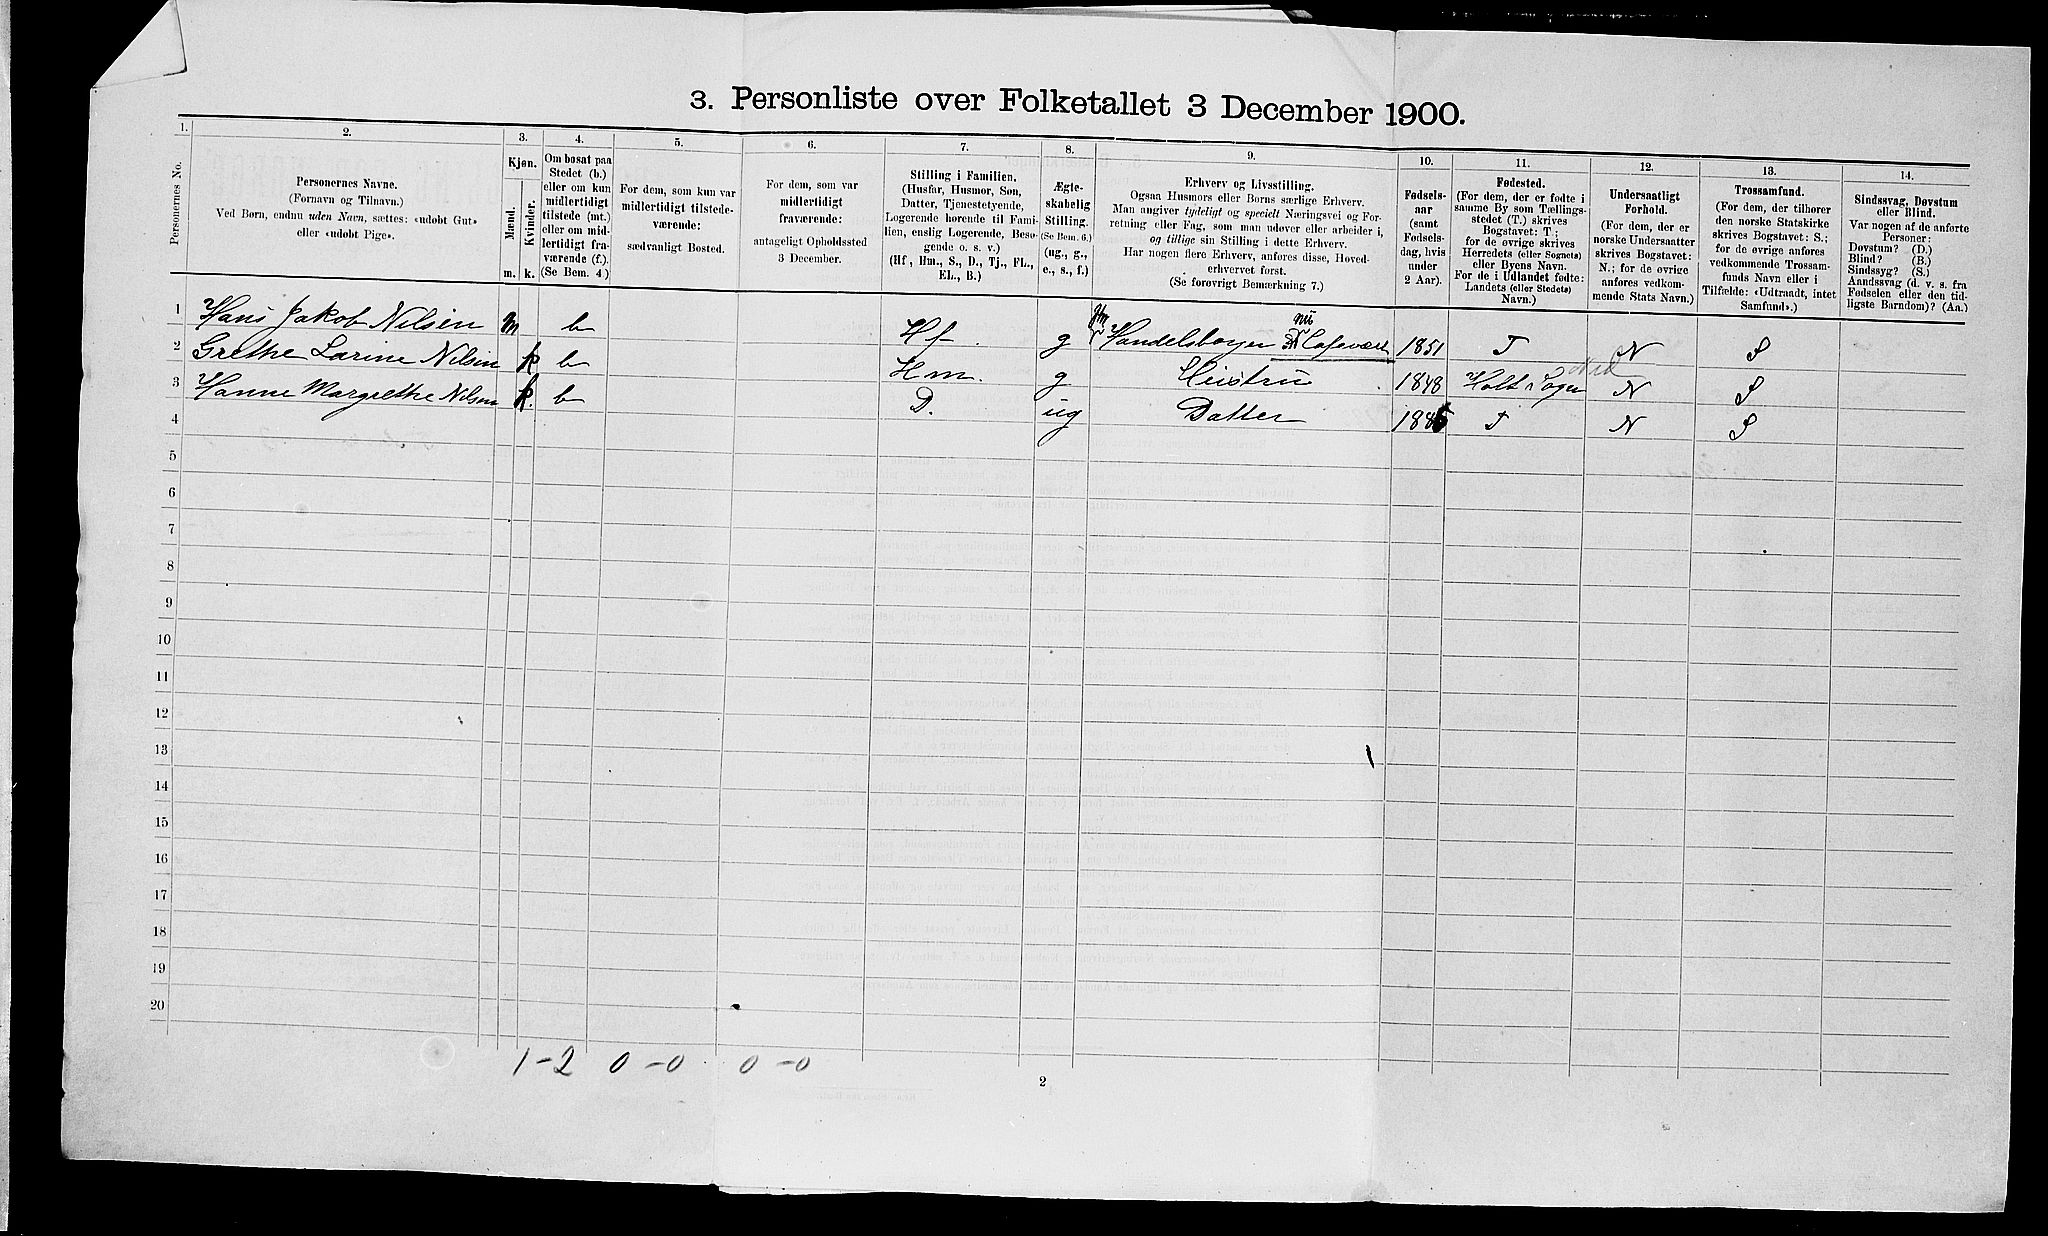 3. Personliste over Folketallet 3 December 1900.
1. 2. 3. 4. 5. 6. 7. 8. 9. 10. 11. 12. 13. 14.
Personernes No.
Personernes Navne.
(Fornavn og Tilnavn.)
Ved Børn, endnu uden Navn, sættes: «udøbt Gut»
eller «udøbt Pige».
Kjøn.
Mænd.
Kvinder.
m. k.
Om bosat paa
Stedet (b.)
eller om kun
midlertidigt
tilstede (mt.)
eller om mid-
lertidigt fra-
værende (f.).
(Se Bem. 4.)
For dem, som kun var
midlertidigt tilstede-
værende:
sædvanligt Bosted.
For dem, som var
midlertidigt
fraværende:
antageligt Opholdssted
3 December.
Stilling i Familien.
(Husfar, Husmor, Søn,
Datter, Tjenestetyende,
Logerende hørende til Fami-
lien, enslig Logerende, Besø-
gende o. s. v.)
(Hf., Hm., S., D., Tj., FL.,
EL., B.)
Ægte-
skabelig
Stilling.
(Se Bem. 6.)
(ug., g.,
e., s., f.)
Erhverv og Livsstilling.
Ogsaa Husmors eller Børns særlige Erhverv.
Man angiver tydeligt og specielt Næringsvei og For-
retning eller Fag, som man udøver eller arbeider i,
og tillige sin Stilling i dette Erhverv.
Har nogen flere Erhverv, anføres disse, Hoved-
erhvervet først.
(Se forøvrigt Bemærkning 7.)
Fødsels-
aar
(samt
Fødsels-
dag, hvis
under
2 Aar).
Fødested.
(For dem, der er fødte i
samme By som Tællings-
stedet (T.) skrives
Bogstavet: T.;
for de øvrige skrives
Herredets (eller Sognets)
eller Byens Navn.
For de i Udlandet fødte:
Landets (eller Stedets)
Navn.)
Undersaatligt
Forhold.
(For dem, der er
norske Undersaatter
skrives Bogstavet:
N.; for de øvrige
anføres vedkom-
mende Stats Navn.)
Trossamfund.
(For dem, der tilhører
den norske Statskirke
skrives Bogstavet: S.;
for de øvrige anføres
vedkommende Trossam-
funds Navn eller i
Tilfælde: «Udtraadt, intet
Samfund».)
Sindssvag, Døvstum
eller Blind.
Var nogen af de anførte
Personer:
Døvstum? (D.)
Blind? (B.)
Sindssyg? (S.)
Aandssvag (d. v. s. fra
Fødselen eller den tid-
ligste Barndom)? (Aa.)
1 Hans Jakob Nilsen m b Hf. g Handelsborger nu Cafévært 1851 T N S
2 Grethe Larine Nilsen k b Hm. g Heistru 1848 Holt Sogn Ned N S
3 Hanne Margrethe Nilsen k. b D. ug Datter 1885 T N S
4
5
6
7
8
9
10
11
12
13
14
15
16
17
18
19
20
1-2 0-0 0-0
2